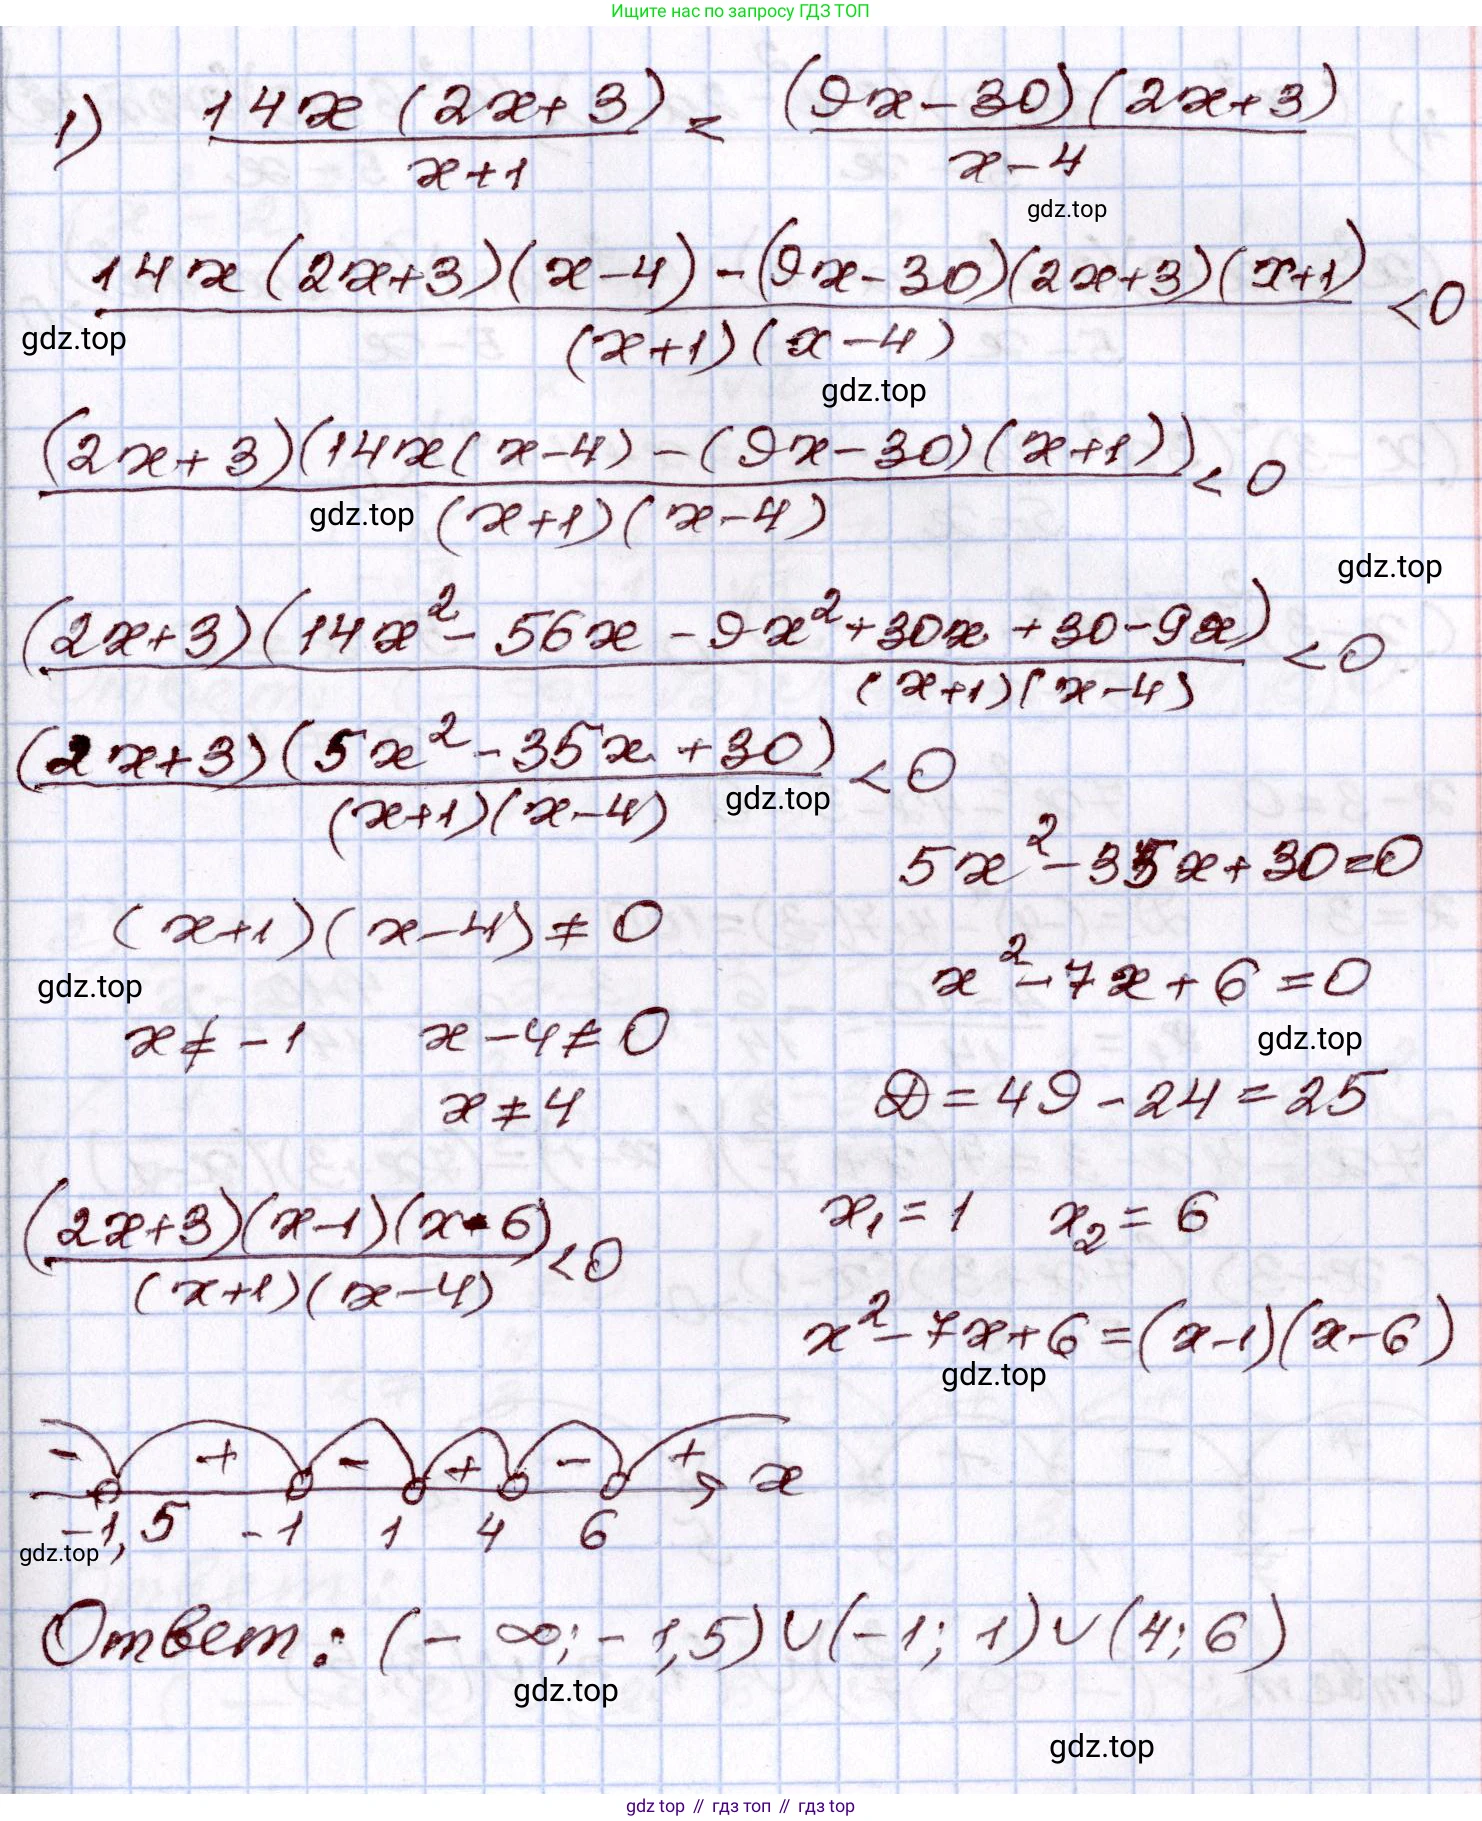 Ищите нас по запросу ГДЗ ТОП
1) 14x(2x+3)/(x+1) < (9x-30)(2x+3)/(x-4)
gdz.top
(14x(2x+3)(x-4)-(9x-30)(2x+3)(x+1))/((x+1)(x-4)) <0
gdz.top
gdz.top
(2x+3)(14x(x-4)-(9x-30)(x+1))/((x+1)(x-4)) <0
gdz.top
gdz.top
(2x+3)(14x²-56x-9x²+30x+30-9x)/((x+1)(x-4)) <0
(2x+3)(5x²-35x+30)/((x+1)(x-4)) <0
gdz.top
5x²-35x+30=0
(x+1)(x-4)≠0
x²-7x+6=0
gdz.top
x≠-1 x-4≠0
gdz.top
x≠4
D=49-24=25
(2x+3)(x-1)(x-6)/((x+1)(x-4)) <0
x₁=1 x₂=6
x²-7x+6=(x-1)(x-6)
gdz.top
- + - + - + x
-1,5 -1 1 4 6
gdz.top
Ответ: (-∞;-1,5)∪(-1;1)∪(4;6)
gdz.top
gdz.top
gdz top // гдз топ // gdz.top